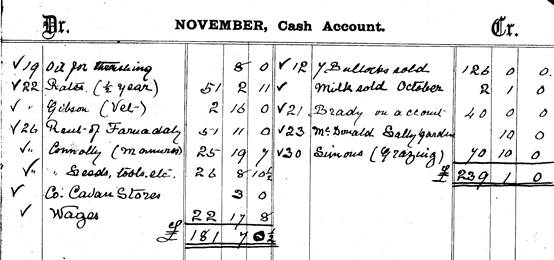 Dr. NOVEMBER, Cash Account. Cr.
✓19 Oil for thrashing 8 0
✓22 Rates (½ year) 51 2 11
✓ " Gibson (Vet) 2 16 0
✓26 Rent of Farnadaly 51 11 0
✓" Connolly (Manures) 25 19 7
✓" " Seeds, tools, etc. 26 8 10½
✓ Co: Cavan Stores 3 0
✓ Wages 22 17 8
£ 181 7 0½
✓12 7 Bullocks sold 126 0 0
✓ Milk sold October 2 1 0
✓21 Brady on account 40 0 0
✓23 McDonald Sally Garden 10 0
✓30 Simons (Grazing) 70 10 0
£ 239 1 0